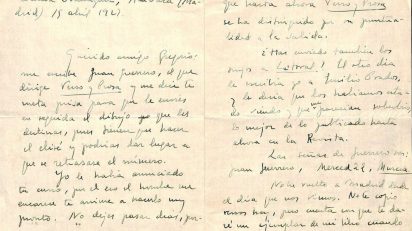 (Ma-
drid) 15 abril 1927
Querido amigo Gregorio:
me escribe Juan Guerrero, el que
dirige Verso y Prosa y me dice te
meta prisa para que le envíes
en seguida el dibujo que les
destinas, pues tienen que hacer
el cliché y podrías dar lugar a
que se retrasara el número.
Yo le había anunciado
tu envío, que él
encarece te anime a hacerlo muy
pronto. No dejes pasar días, por-
que hasta ahora Verso y Prosa
se ha distinguido por su puntua-
lidad a la salida.
¿Has enviado también los
tuyos a Litoral? El otro día
le escribía yo a Emilio Prados,
y le decía que los habíamos esta-
do viendo y que me parecían
lo mejor de lo publicado hasta
ahora en la Revista.
Las señas de Guerrero son:
Juan Guerrero, Merced 22, Murcia.
No he vuelto a Madrid desde
el día que nos vimos. No te copio
versos hoy, pero cuenta en que te da-
ré un ejemplar de mi libro cuando